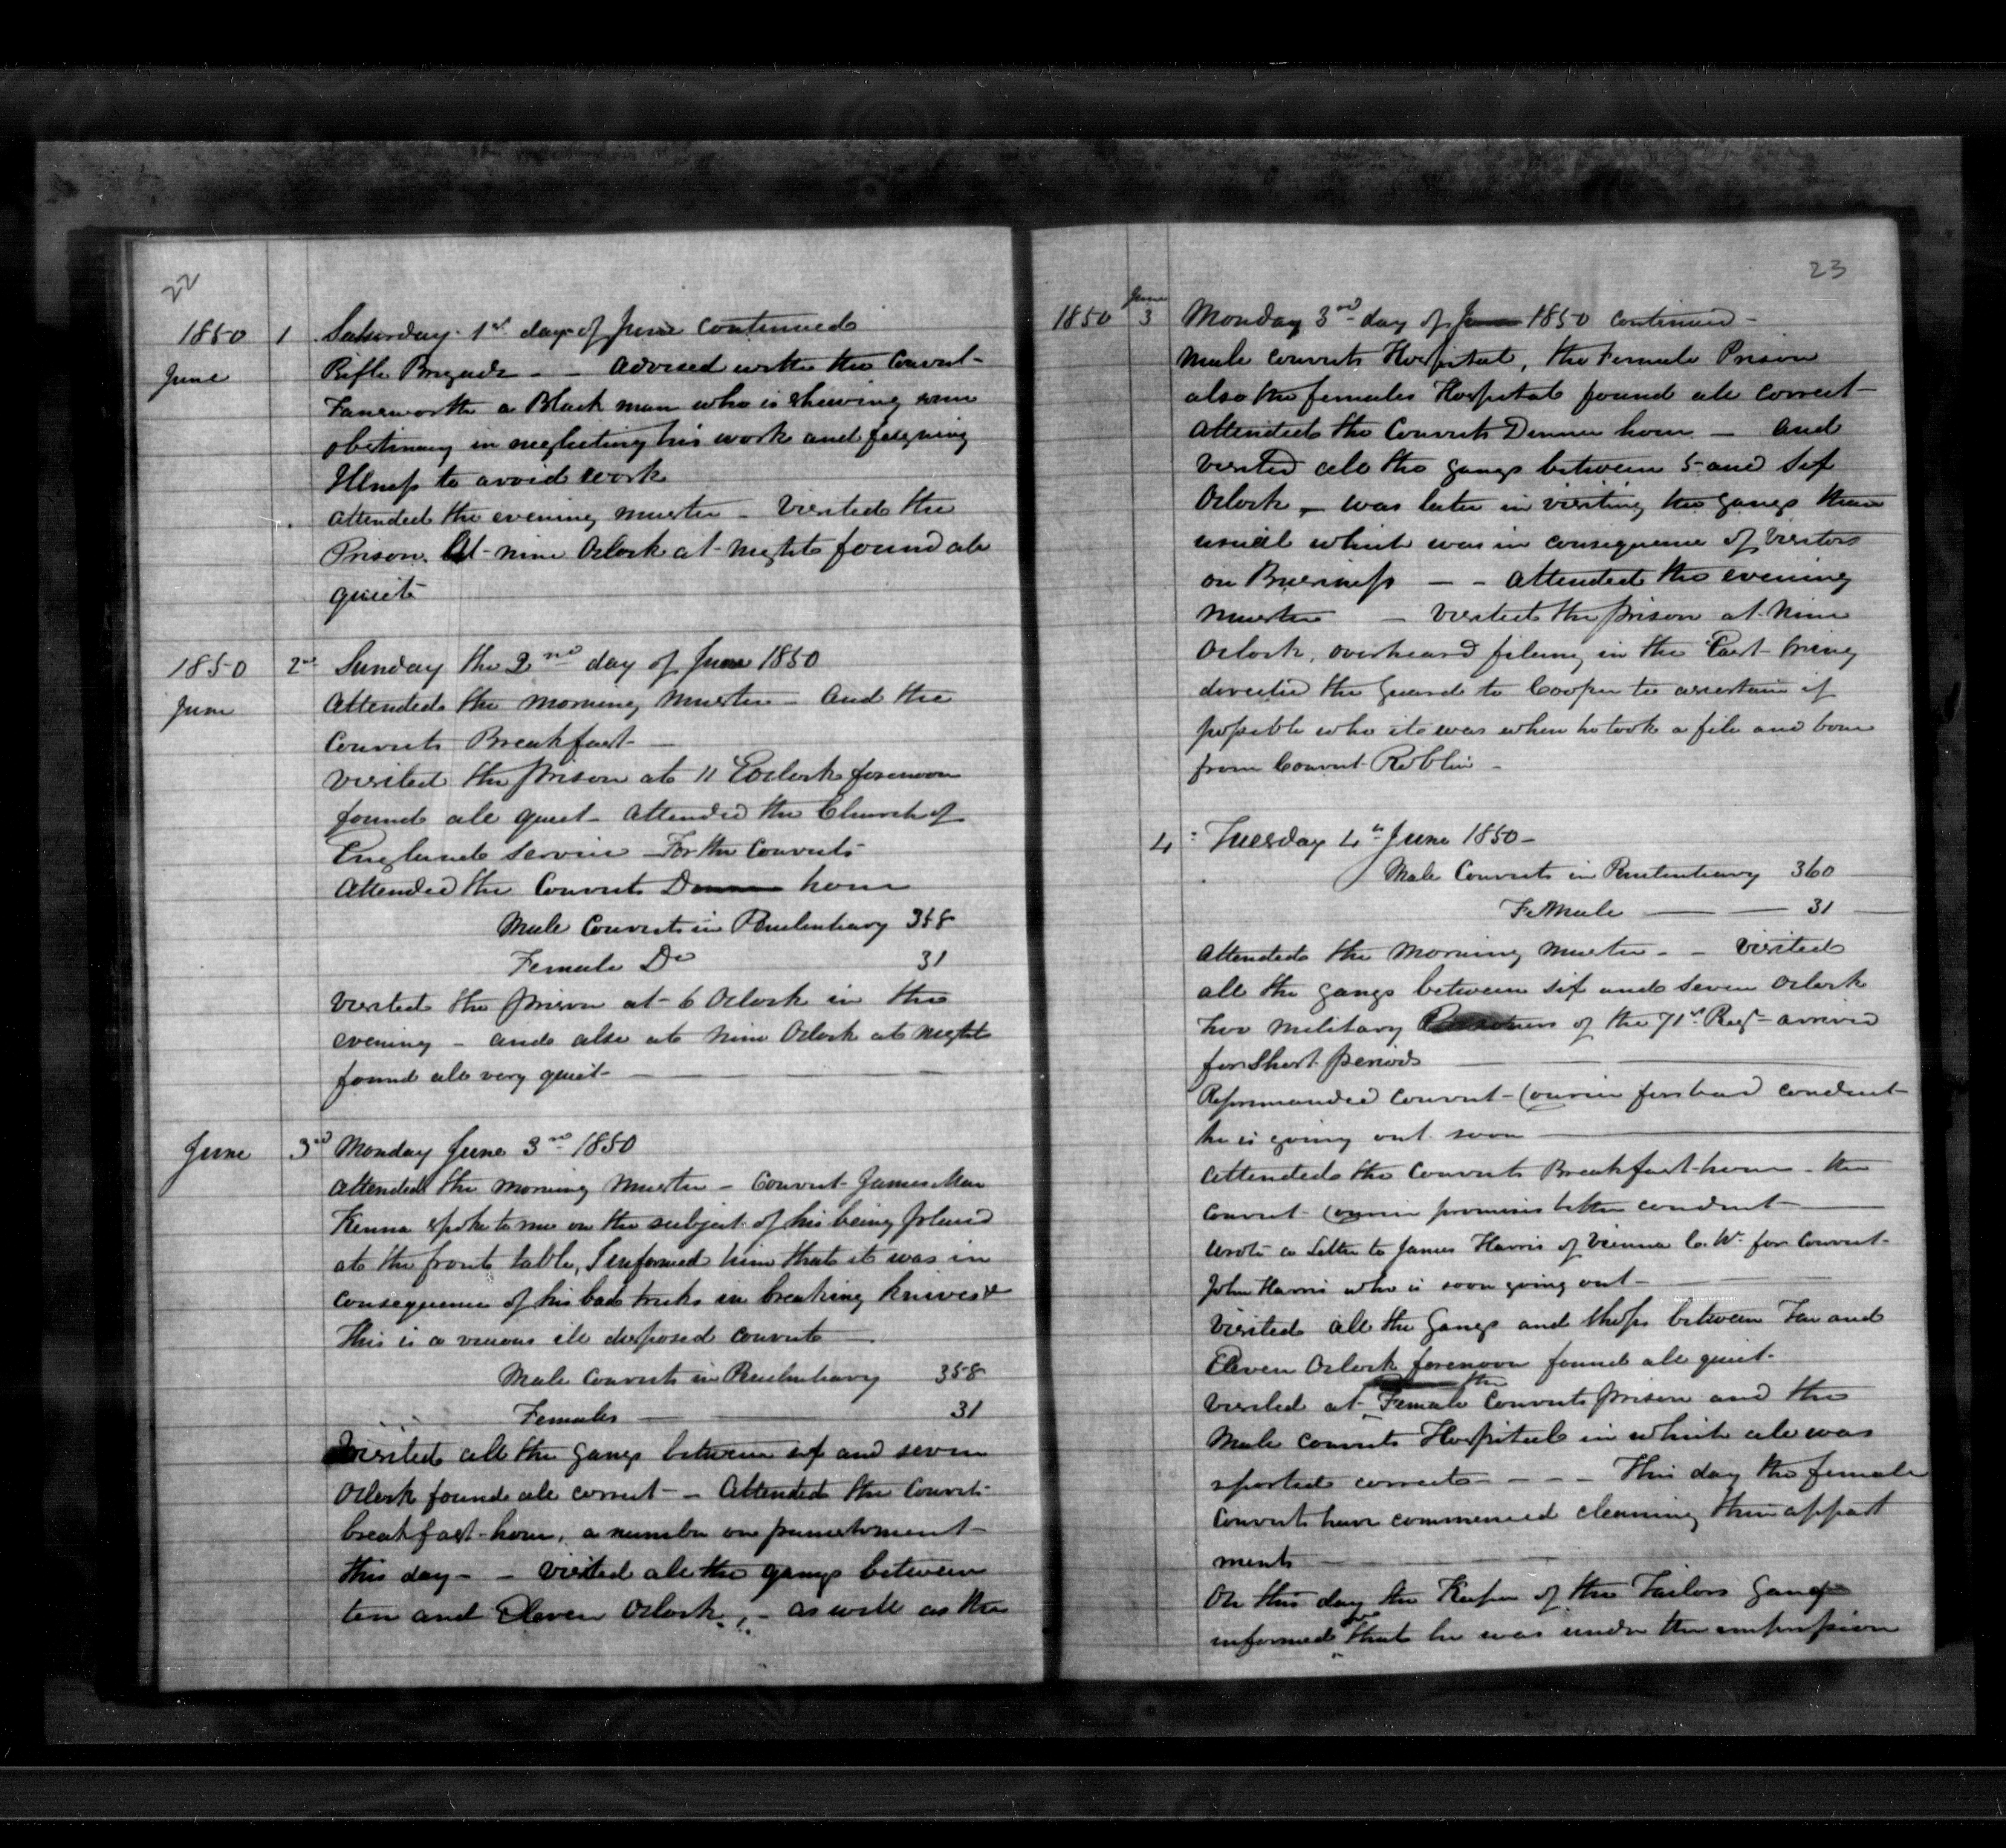 22
1850 1 Saturday 1st day of June Continued
June Rifle Brigade - - advised with the Convict
Fansworth a Black man who is shewing some
obstinacy in neglecting his work and feigning
Illness to avoid work
Attended the evening muster - Visited the
Prison. At nine Oclock at night found all
quiet
1850 2nd Sunday the 2nd day of June 1850
June Attended the morning muster - And the
Convicts Breakfast -
Visited the prison at 11 Oclock forenoon
found all quiet - Attended the Church of
England Service - For the Convicts
Attended the Convicts Dinner hour
Male Convicts in Penitentiary 358
Female Do 31
Visited the prison at 6 Oclock in the
evening - and also at nine Oclock at night
found all very quiet -
June 3rd Monday June 3rd 1850
Attended the morning muster - Convict James Mac
Kenna spoke to me on the subject of his being placed
at the front table, I informed him that it was in
consequence of his bad tricks in breaking knives &
This is a vicious ill disposed convict -
Male Convicts in Penitentiary 358
Females - 31
Visited all the gangs between six and seven
Oclock found all correct - - Attended the Convicts
breakfast hour, a number on punishment
this day - - visited all the gangs between
ten and Eleven Oclock, - as well as the
23
June
1850 3 Monday 3rd day of June 1850 continued -
Male Convicts Hospital, the Female Prison
also the females Hospital found all correct -
Attended the Convicts Dinner hour - And
visited all the gangs between 5 and Six
Oclock - was later in visiting the gangs than
usual which was in consequence of Visitors
on Business - - Attended the evening
muster - Visited the prison at Nine
Oclock, overheard filing in the East Wing
directed the Guard to Cooper to ascertain if
possible who it was when he took a file and bone
from Convict Roblin -
4 Tuesday 4th June 1850 -
Male Convicts in Penitentiary 360
Female - - 31
Attended the Morning muster - - Visited
all the gangs between six and seven Oclock
two military Prisoners of the 71st Regt arrived
for Short periods
Reprimanded Convict for bad conduct
he is going out soon
Attended the Convicts Breakfast hour - the
Convict promises better conduct
Wrote a Letter to James Harris of Vienna C. W. for Convict
John Harris who is soon going out -
Visited all the Gangs and shops between Ten and
Eleven Oclock forenoon found all quiet -
the
Visited at Female Convicts prison and the
Male Convicts Hospital in which all was
reported correct - - - This day the female
Convicts have commenced cleaning their appart
ments
On this day the Keeper of the Tailors Gang
informed me that he was under the impression